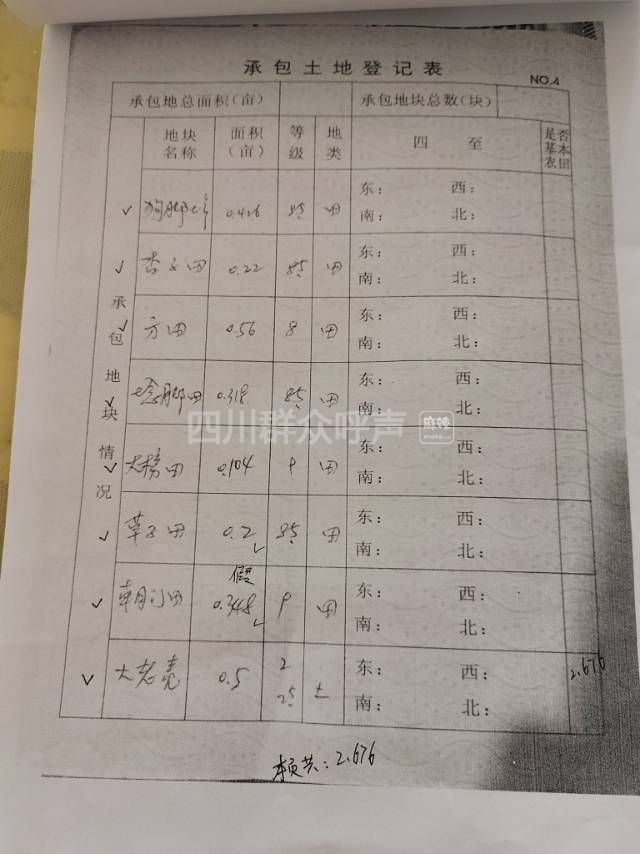 承包土地登记表
NO.4
承包地总面积(亩) 承包地块总数(块)
承包地块情况
地块名称 面积(亩) 等级 地类 四至 是否基本农田
0.426 85 田 东： 西：
南： 北：
0.22 85 田 东： 西：
南： 北：
方田 0.56 8 田 东： 西：
南： 北：
0.318 85 田 东： 西：
南： 北：
大榜田 0.104 9 田 东： 西：
南： 北：
草子田 0.2 85 田 东： 西：
南： 北：
假
0.348 9 田 东： 西：
南： 北：
0.5 2 土 东： 西： 2.676
25 南： 北：
共：2.676
四川群众呼声
麻辣
mala.cn